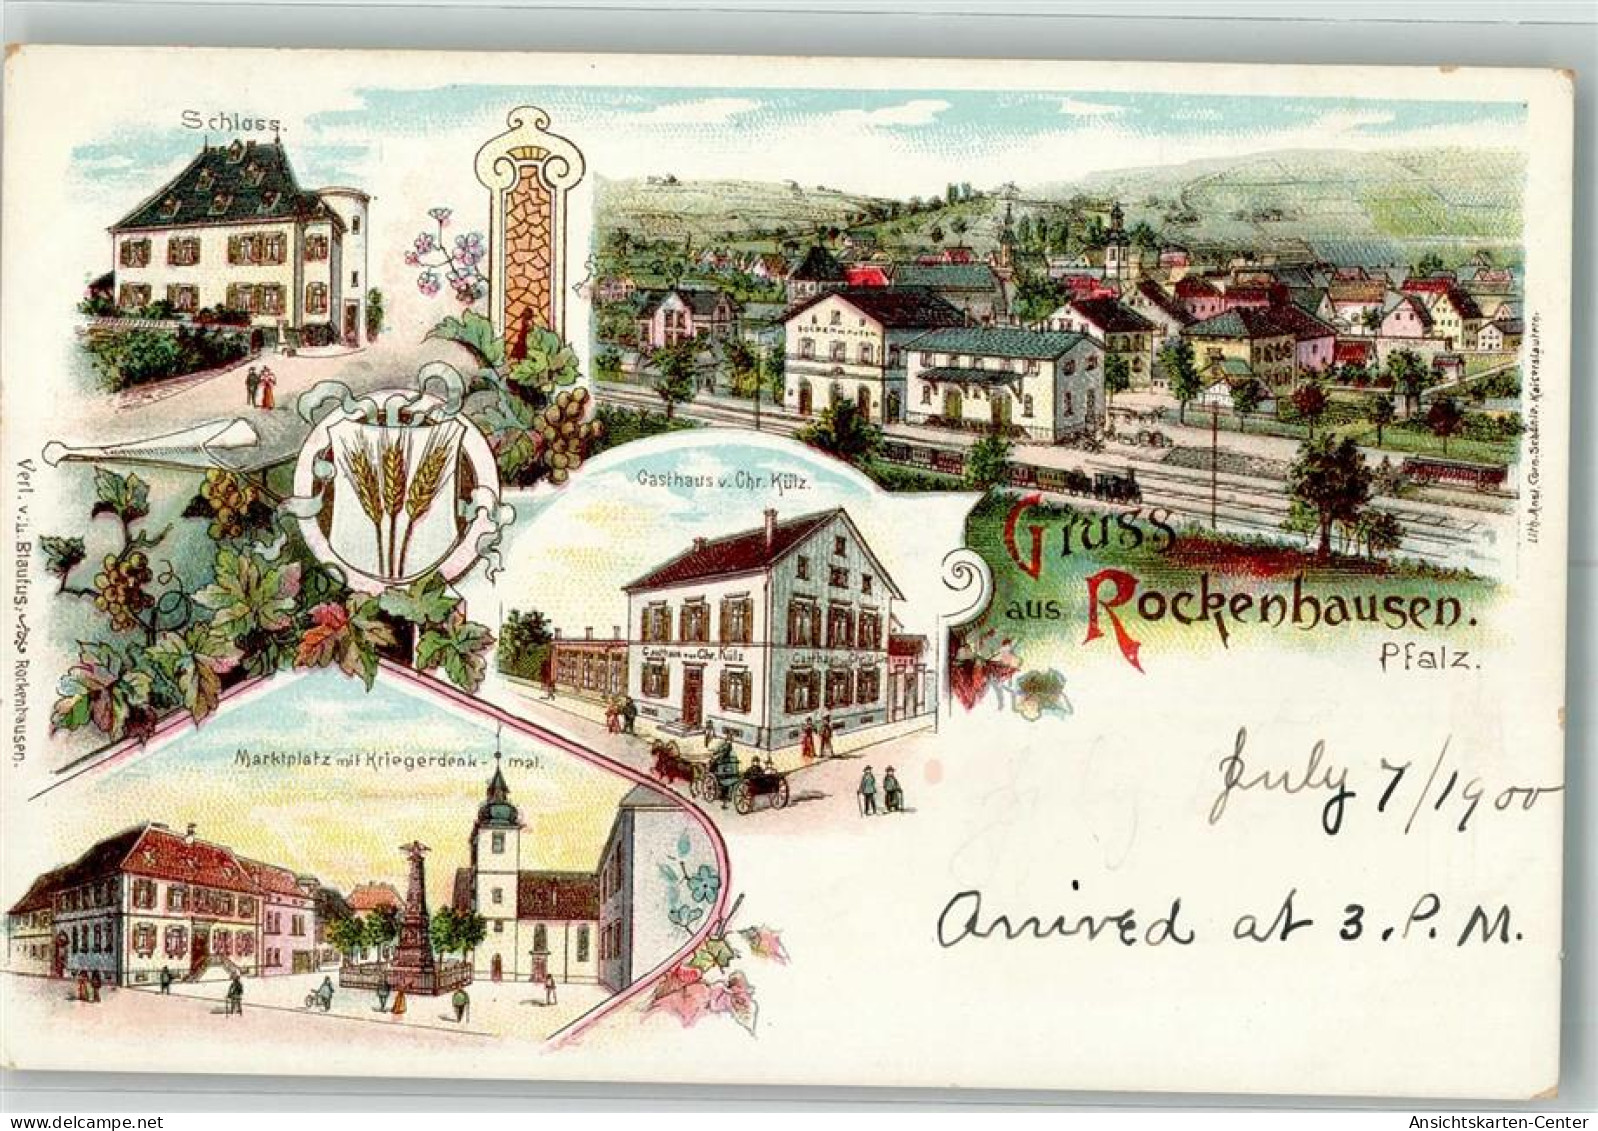 Schloss.
ROCKENHAUSEN
Gasthaus v. Chr. Külz.
Gasthaus von Chr. Külz
Gasthaus
Gruss
aus Rockenhausen.
Pfalz.
Marktplatz mit Kriegerdenk-mal.
Verl. v. L. Blaufus, Rockenhausen.
Lith. Anst. Corn. Schänle, Kaiserslautern.
July 7/1900
Arrived at 3. P. M.
Ansichtskarten-Center